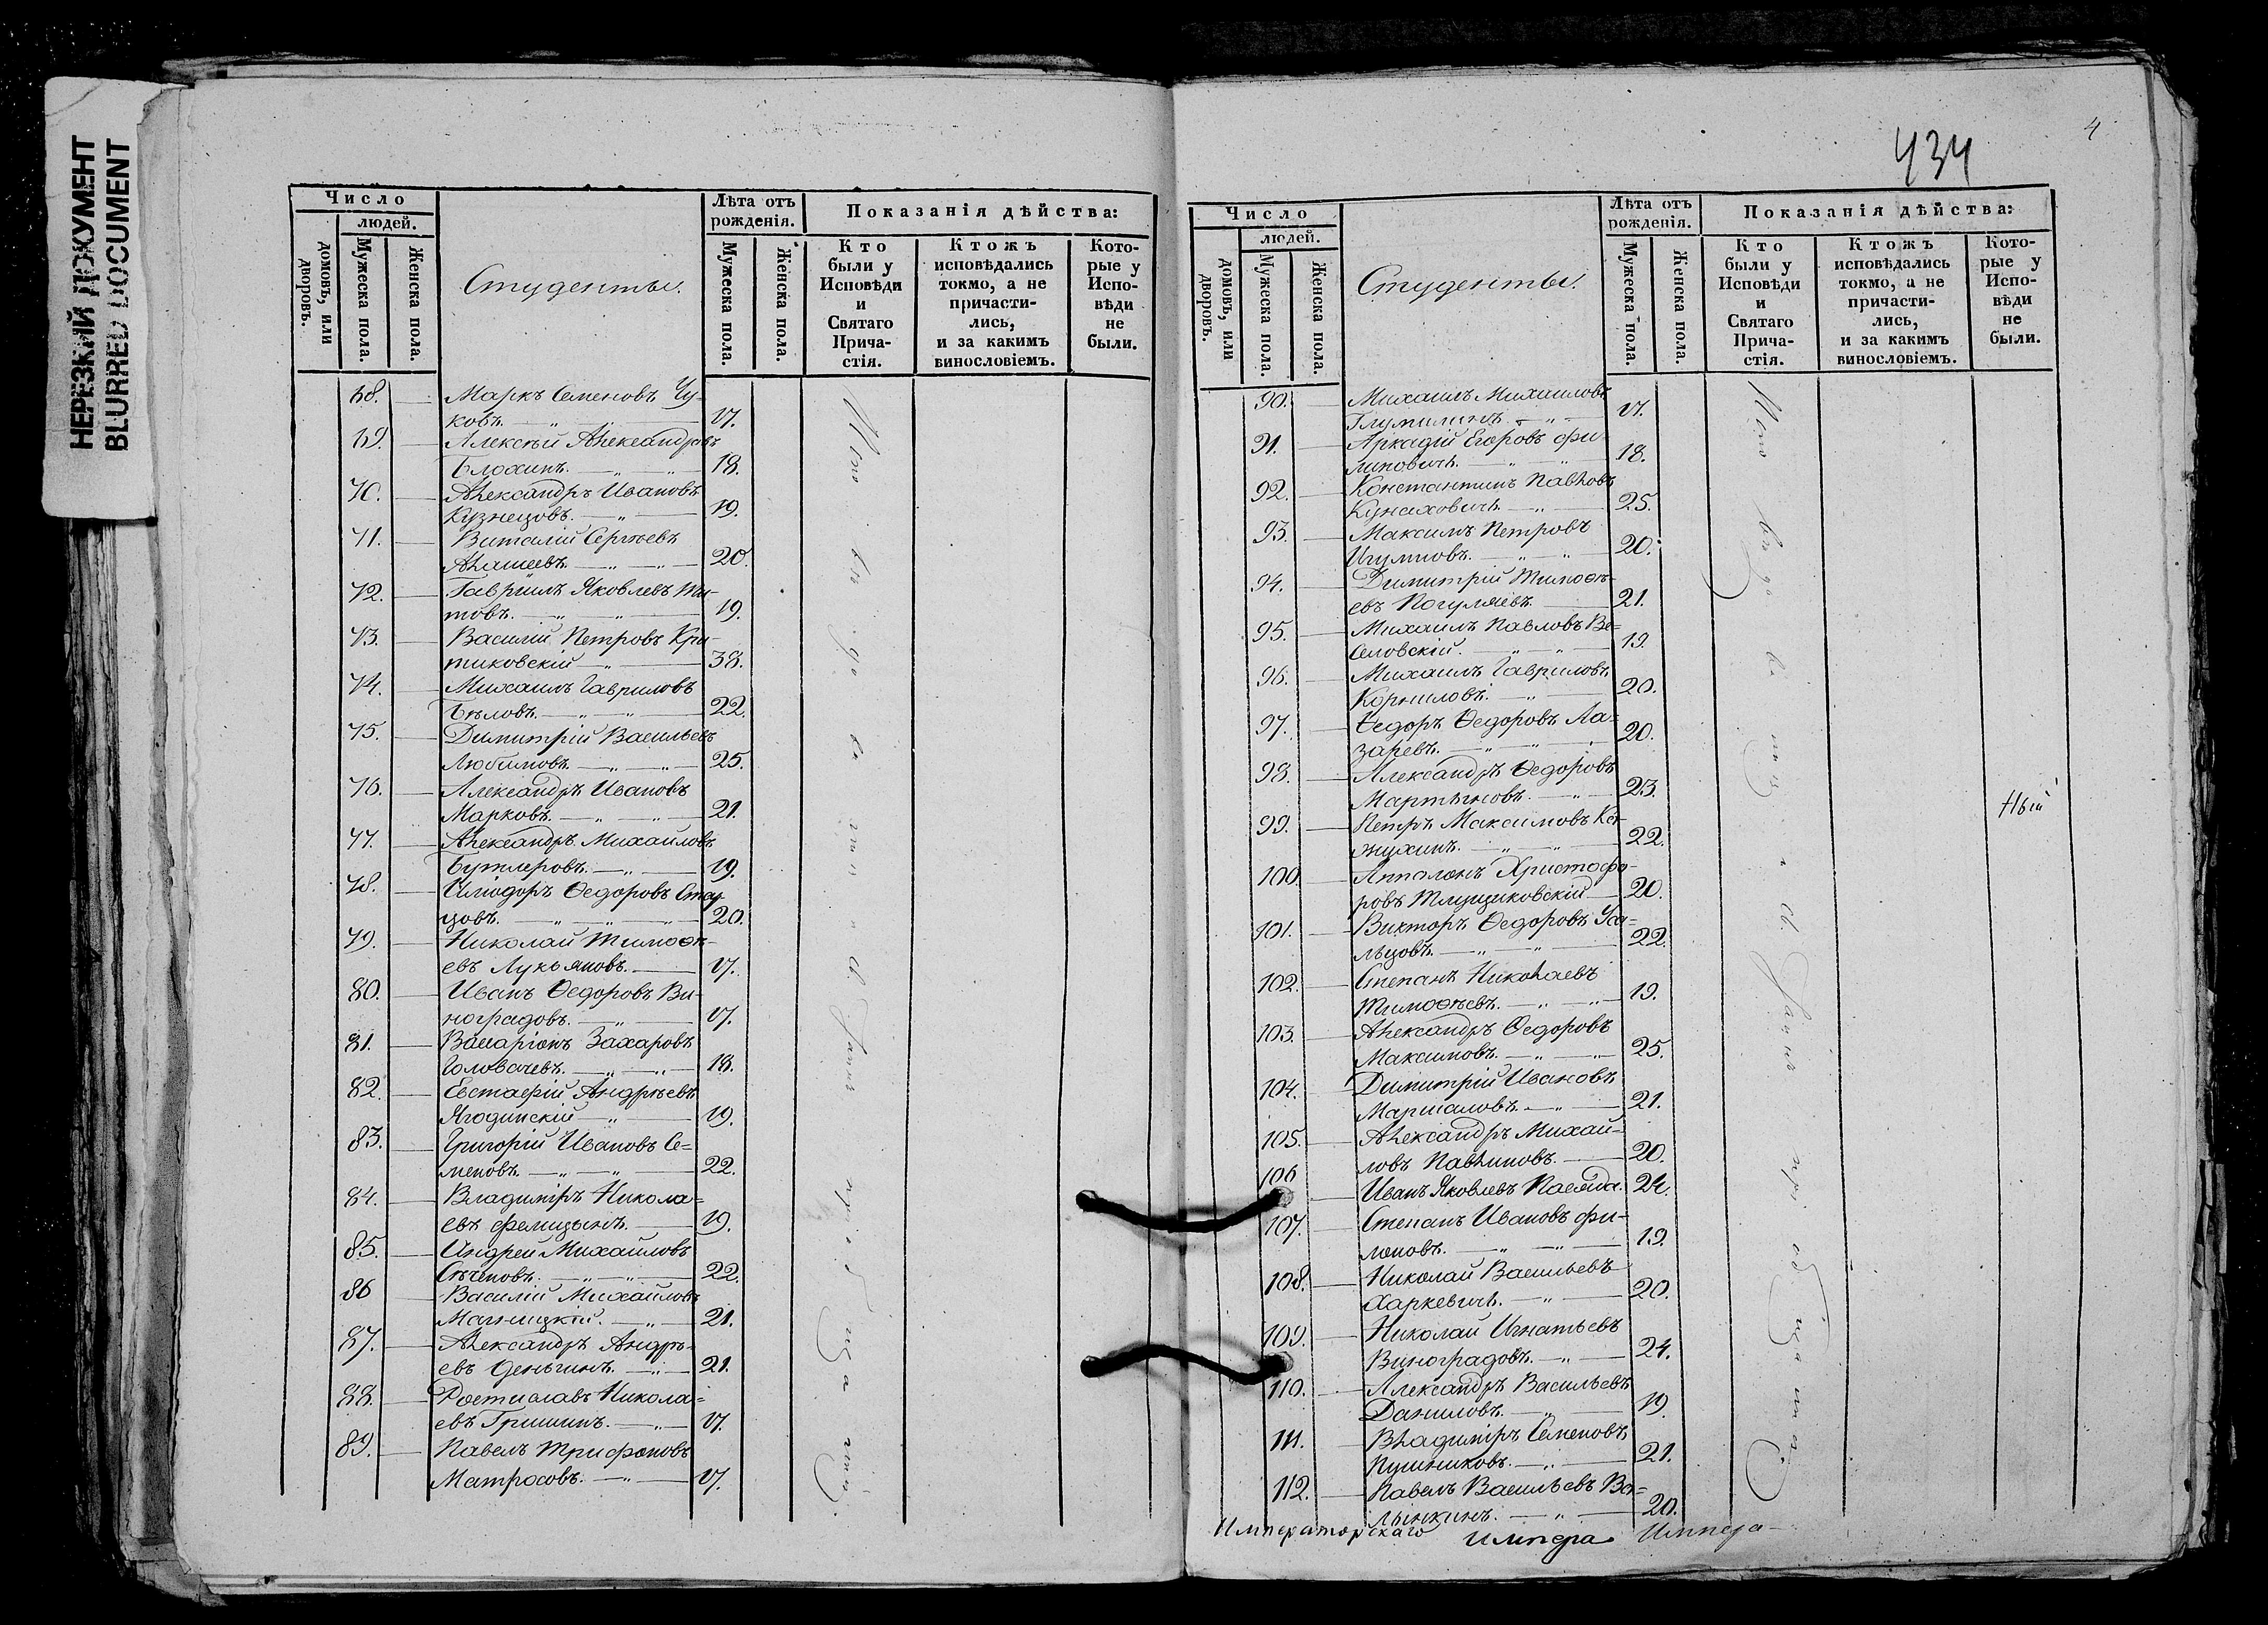 НЕРЕЗКИЙ ДОКУМЕНТ
BLURRED DOCUMENT
Число
людей.
домовъ, или дворовъ.
Мужеска пола.
Женска пола.
Студенты.
Лѣта отъ рожденія.
Мужеска пола.
Женска пола.
Показанія дѣйства:
Кто были у Исповѣди и Святаго Причастія.
Ктожъ исповѣдались токмо, а не причастились, и за какимъ винословіемъ.
Которые у Исповѣди не были.
68. Маркъ Семеновъ Чу-
ковъ. 17.
69. Алексѣй Александровъ
Блохинъ. 18.
70. Александръ Ивановъ
Кузнецовъ. 19.
71. Виталій Сергѣевъ
20.
72. Гавріилъ Яковлевъ Ти-
товъ. 19.
73. Василій Петровъ Кри-
тиковскій 38.
74. Михаилъ Гавриловъ
Бѣловъ. 22.
75. Димитрій Васильевъ
Любимовъ. 25.
76. Александръ Ивановъ
Марковъ. 21.
77. Александръ Михайловъ
Бутлеровъ. 19.
78. Иліодоръ Ѳедоровъ
цовъ. 20.
79. Николай Тимоѳѣ-
евъ Лукьяновъ. 17.
80. Иванъ Ѳедоровъ Ви-
ноградовъ. 17.
81. Захаровъ
Головачевъ. 18.
82. Евстафій Андрѣевъ
Ягодинскій 19.
83. Григорій Ивановъ Се=
меновъ. 22.
84. Владиміръ Никола=
евъ Фелицынъ. 19.
85. Андрей Михайловъ
Сѣченовъ. 22.
86 Василій Михайловъ
Магницкій. 21.
87. Александръ Андрѣ-
евъ Деньгинъ. 21.
88. Ростиславъ Никола=
евъ Гришинъ. 17.
89. Павелъ Трифоновъ
Матросовъ. 17.
434
4
Число
людей.
домовъ, или дворовъ.
Мужеска пола.
Женска пола.
Студенты.
Лѣта отъ рожденія.
Мужеска пола.
Женска пола.
Показанія дѣйства:
Кто были у Исповѣди и Святаго Причастія.
Ктожъ исповѣдались токмо, а не причастились, и за какимъ винословіемъ.
Которые у Исповѣди не были.
90. Михаилъ Михаиловъ
Глумилинъ 17.
91. Аркадій Егоровъ Фи-
липовичъ. 18.
92. Константинъ Павловъ
Кунаховичъ. 25.
93. Максимъ Петровъ
Игумновъ. 20.
94. Димитрій Тимоѳѣ-
евъ Погуляевъ. 21.
95. Михаилъ Павловъ Ве=
селовскій. 19.
96. Михаилъ Гавриловъ
Корниловъ. 20.
97. Ѳедоръ Ѳедоровъ Ла=
заревъ. 20.
98. Александръ Ѳедоровъ
Мартыновъ. 23.
99. Петръ Максимовъ Ко-
жухинъ. 22.
100. Апполонъ Христофо-
ровъ 20.
101. Викторъ Ѳедоровъ Уса-
льцовъ. 22.
102. Степанъ Николаевъ
Тимоѳѣевъ. 19.
103. Александръ Ѳедоровъ
Максимовъ. 25.
104. Димитрій Ивановъ
Маршаловъ. 21.
105. Александръ Михай-
ловъ Павлиновъ. 20.
106 Иванъ Яковлевъ 24.
107. Степанъ Ивановъ Фи-
лоновъ. 19.
108. Николай Васильевъ
Харкевичъ. 20.
109. Николай Игнатьевъ
Виноградовъ. 24.
110. Александръ Васильевъ
Даниловъ. 19.
111. Владиміръ Семеновъ
Пушниковъ. 21.
112. Павелъ Васильевъ Во=
лынкинъ. 20.
Императорскаго Импера Импера-